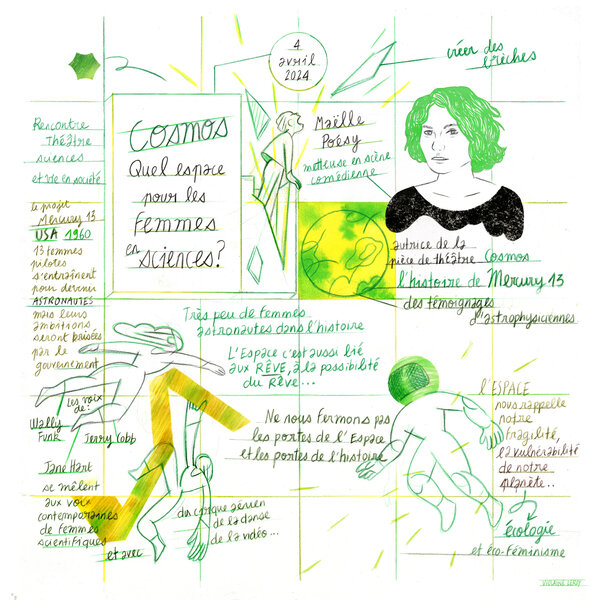 4
avril
2024
créer des
brèches
Rencontre
Théâtre
sciences
et vie en société
le projet
Mercury 13
USA 1960
13 femmes
pilotes
s'entraînent
pour devenir
ASTRONAUTES
mais leurs
ambitions
seront brisées
par le
gouvernement
Cosmos
Quel espace
pour les
femmes
en sciences?
Maëlle
Poésy
metteuse en scène
comédienne
autrice de la
pièce de théâtre Cosmos
l'histoire de Mercury 13
des témoignages
d'astrophysiciennes
Très peu de femmes
astronautes dans l'histoire
L'Espace c'est aussi lié
aux RÊVE, à la possibilité
du RÊVE...
les voix
de:
Wally
Funk
Jerry Cobb
Jane Hart
se mêlent
aux voix
contemporaines
de femmes
scientifiques
et avec
du cirque aérien
de la danse
de la vidéo...
Ne nous fermons pas
les portes de l'Espace
et les portes de l'histoire
l'ESPACE
nous rappelle
notre
fragilité,
la vulnérabilité
de notre
planète..
écologie
et éco-féminisme
VIOLAINE LEROY